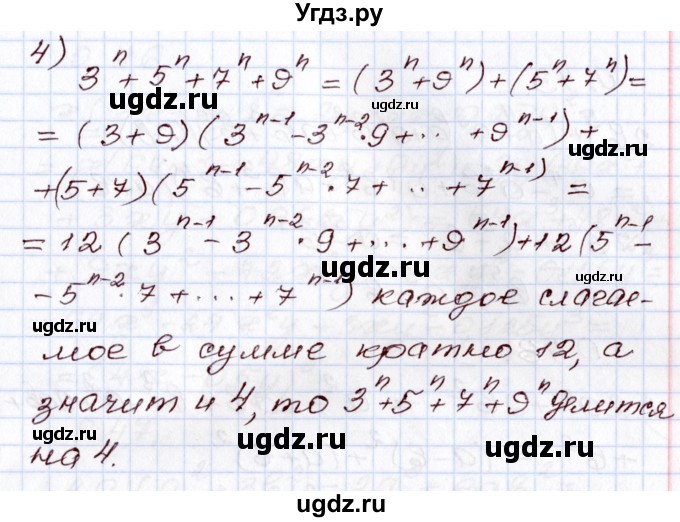 Угдз.ру
4) 3^n + 5^n + 7^n + 9^n = (3^n + 9^n) + (5^n + 7^n) =
ugdz.ru ugdz.ru
= (3 + 9) (3^{n-1} - 3^{n-2} · 9 + ... + 9^{n-1}) +
ugdz.ru
+ (5 + 7) (5^{n-1} - 5^{n-2} · 7 + .. + 7^{n-1)} =
ugdz.ru
= 12 (3^{n-1} - 3^{n-2} · 9 + ... + 9^{n-1}) + 12 (5^{n-1} -
ugdz.ru
- 5^{n-2} · 7 + ... + 7^{n-1}) каждое слагае-
ugdz.ru ugdz.ru
мое в сумме кратно 12, а
ugdz.ru
значит и 4, то 3^n + 5^n + 7^n + 9^n делится
ugdz.ru ugdz.ru
на 4.
ugdz.ru